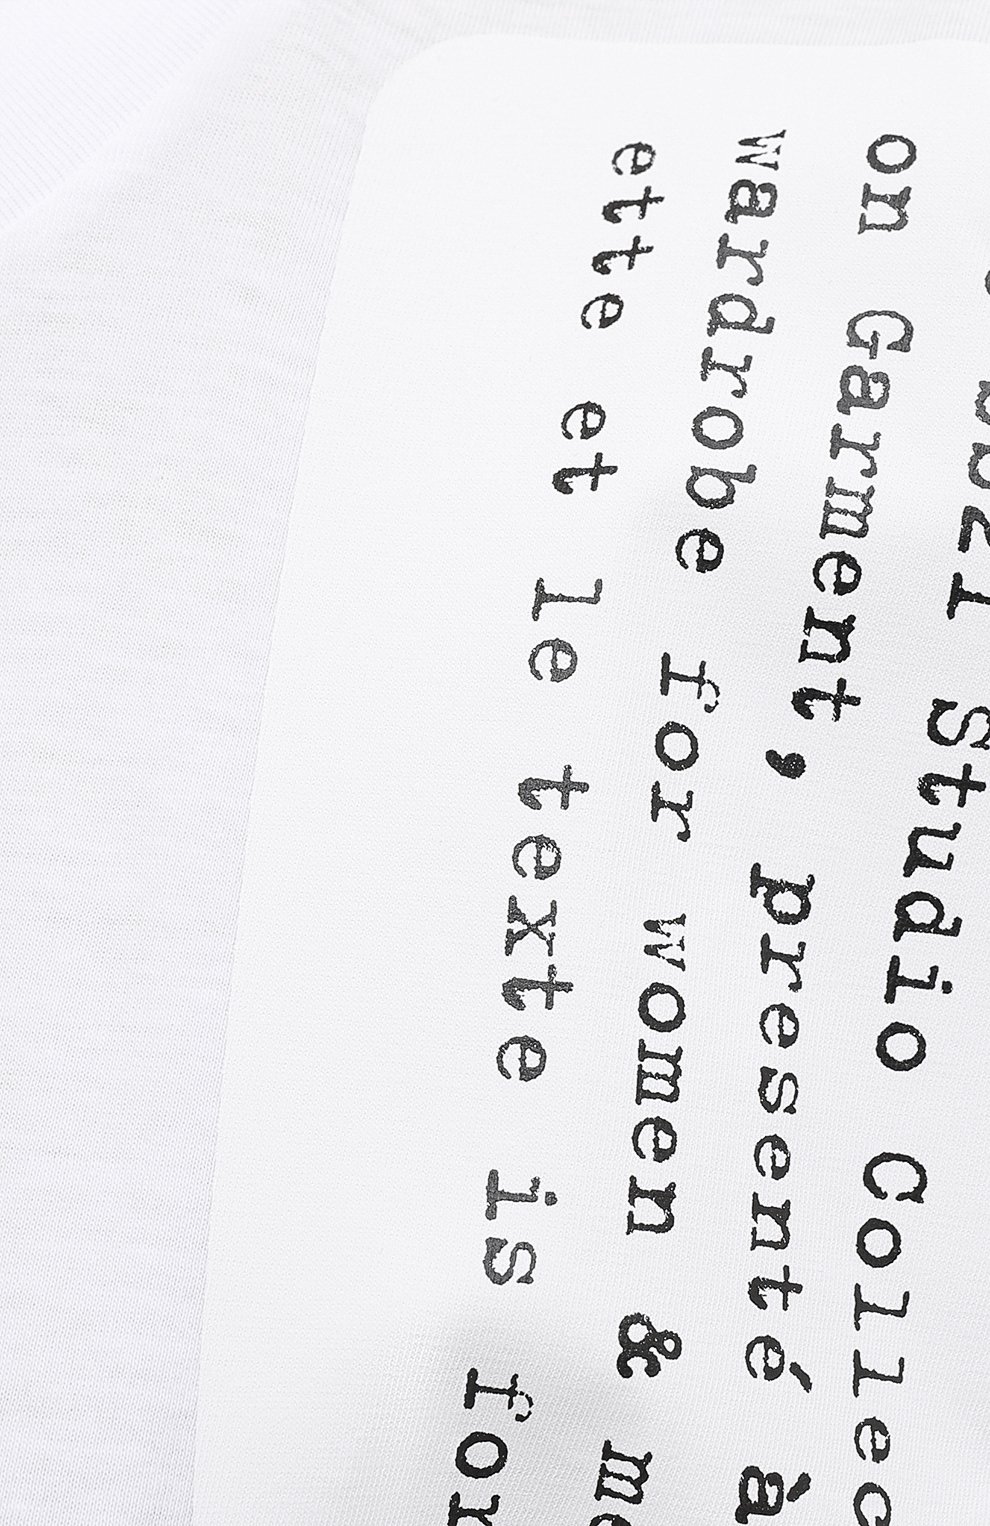 Studio Collec
on Garment, presenté à
wardrobe for women & me
ette et le texte is for